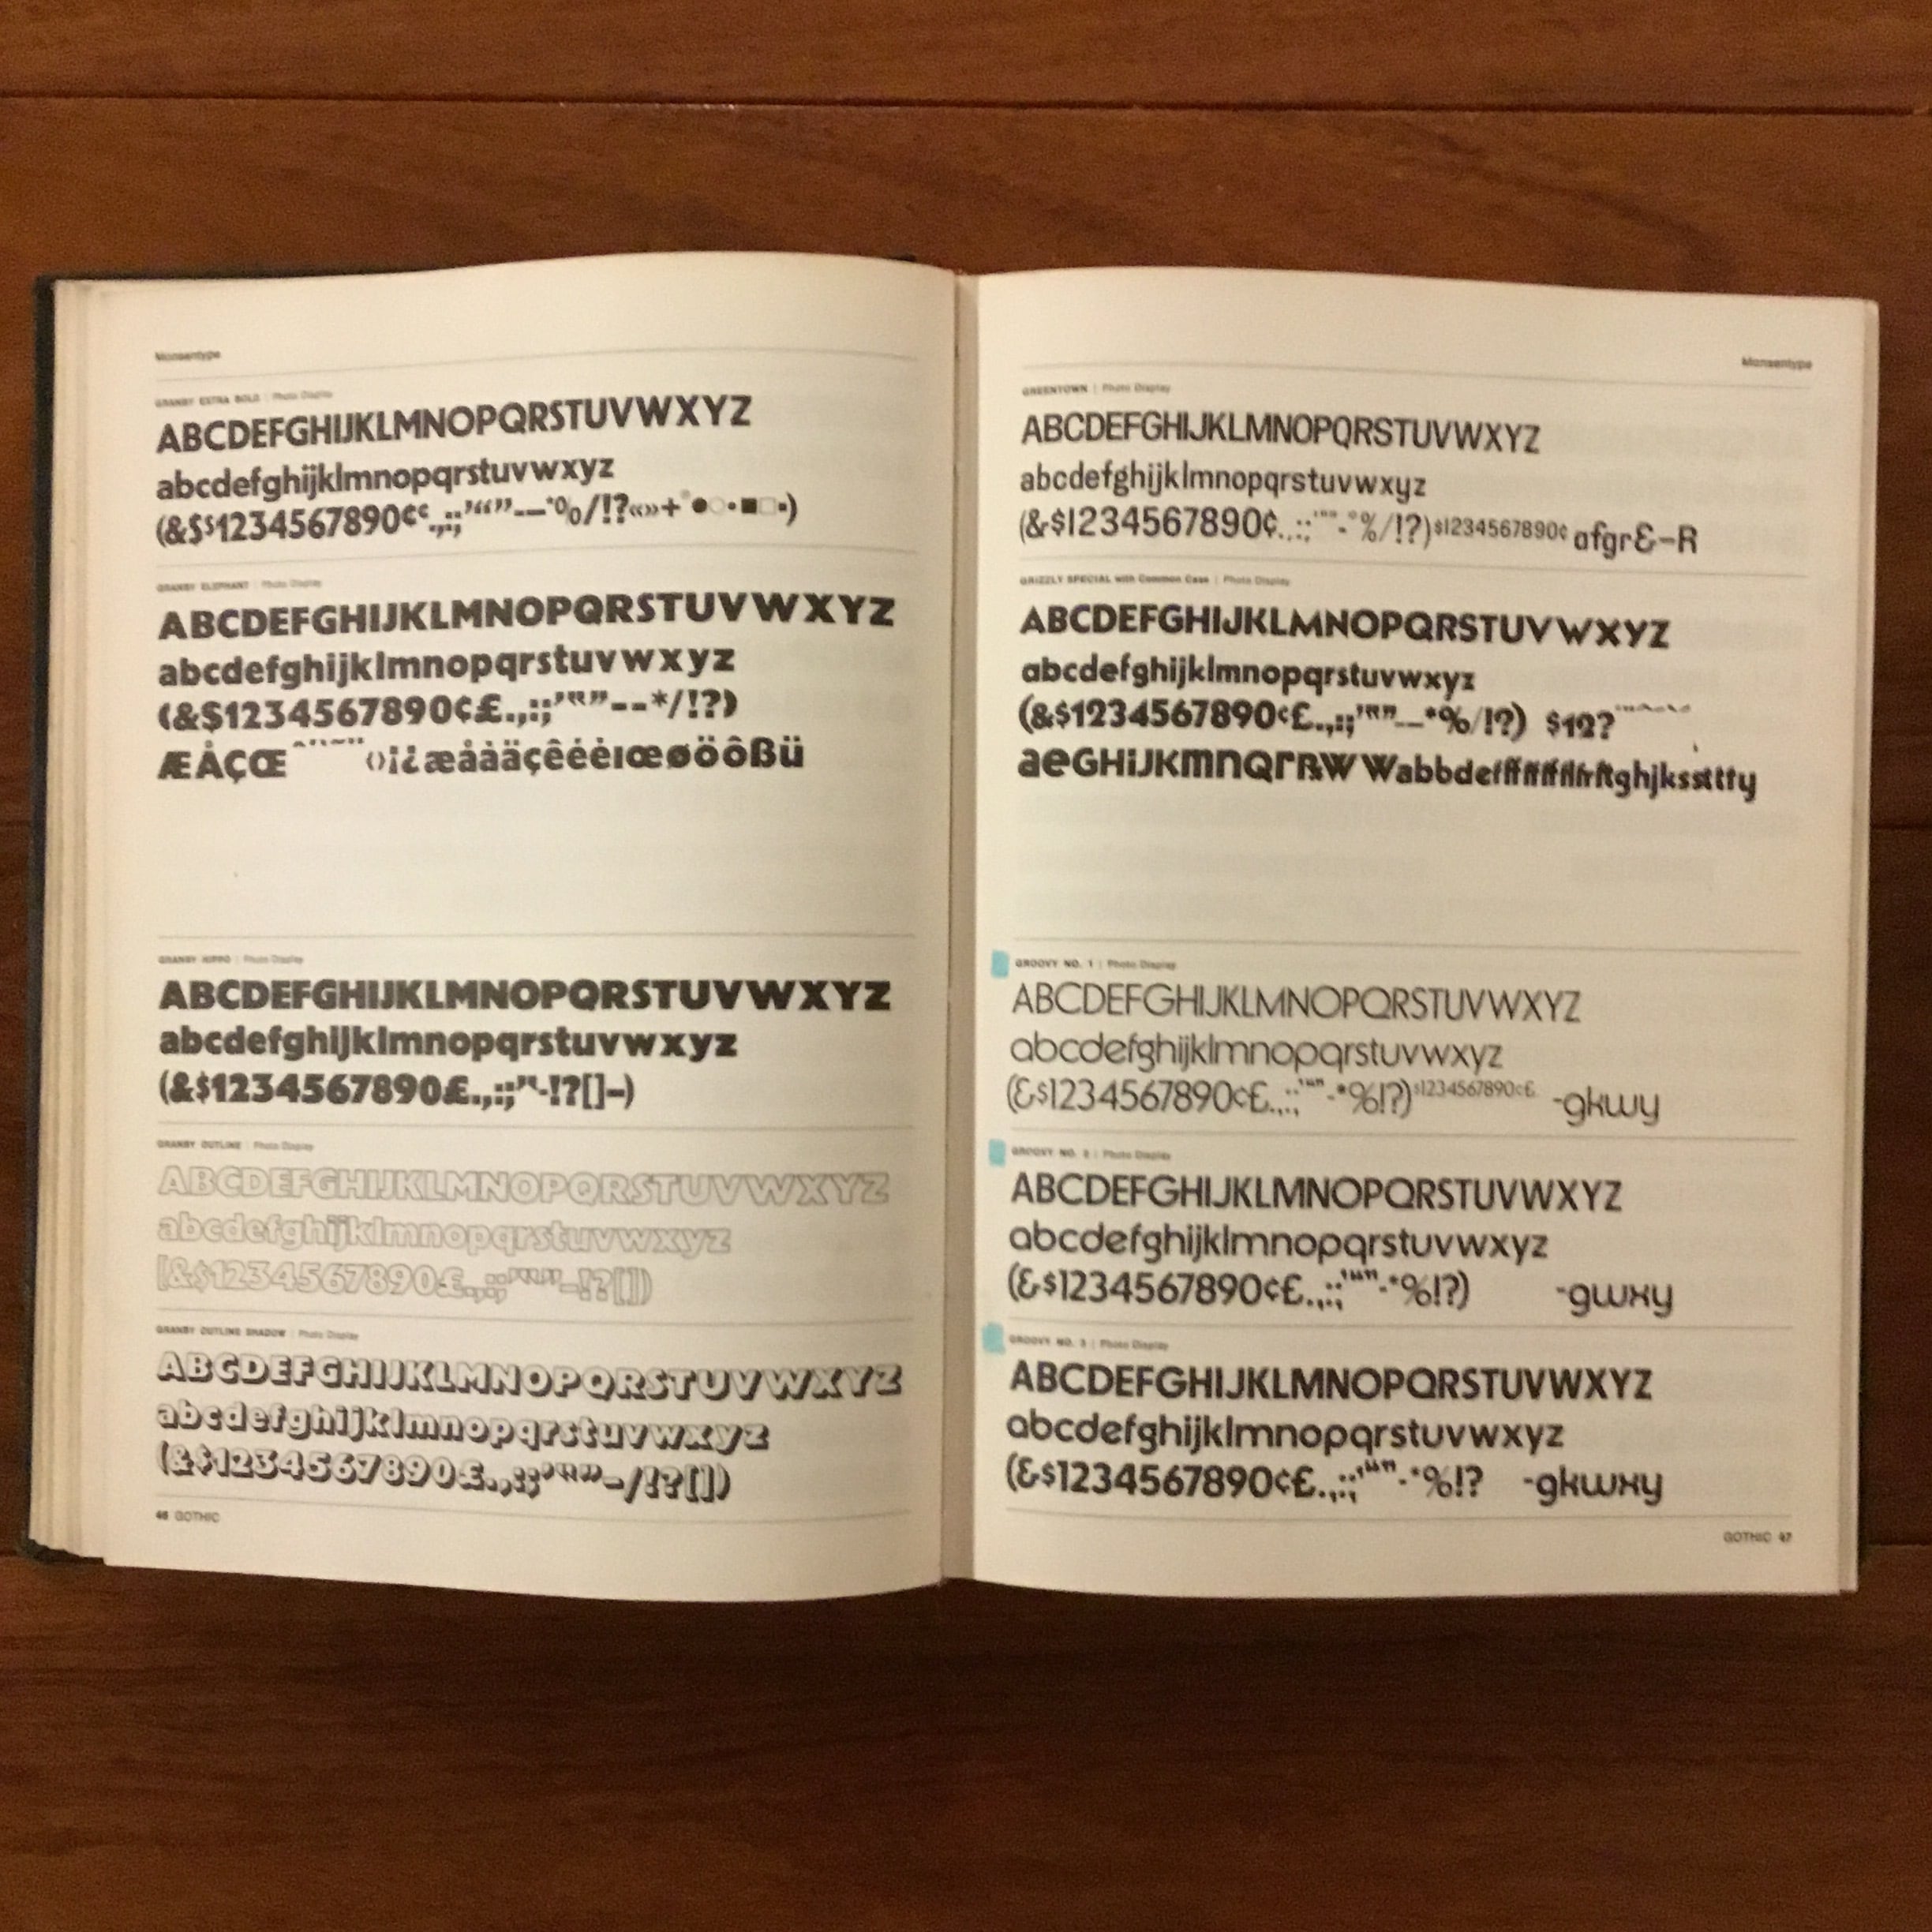 Monsentype
GRANBY EXTRA BOLD | Photo Display
ABCDEFGHIJKLMNOPQRSTUVWXYZ
abcdefghijklmnopqrstuvwxyz
(&$$1234567890¢¢.,:;’“”-—*%/!?«»+°●○•■□▪)
GRANBY ELEPHANT | Photo Display
ABCDEFGHIJKLMNOPQRSTUVWXYZ
abcdefghijklmnopqrstuvwxyz
(&$1234567890¢£.,:;’“”--*/!?)
ÆÅÇŒ ‹›¡¿æåàäçêéèıœøöôßü
GRANBY HIPPO | Photo Display
ABCDEFGHIJKLMNOPQRSTUVWXYZ
abcdefghijklmnopqrstuvwxyz
(&$1234567890£.,:;’‘-!?[]–)
GRANBY OUTLINE | Photo Display
ABCDEFGHIJKLMNOPQRSTUVWXYZ
abcdefghijklmnopqrstuvwxyz
(&$1234567890£.,:;’“”–!?[])
GRANBY OUTLINE SHADOW | Photo Display
ABCDEFGHIJKLMNOPQRSTUVWXYZ
abcdefghijklmnopqrstuvwxyz
(&$1234567890£.,:;’“”–/!?[])
46 GOTHIC
Monsentype
GREENTOWN | Photo Display
ABCDEFGHIJKLMNOPQRSTUVWXYZ
abcdefghijklmnopqrstuvwxyz
(&$1234567890¢.,:;’“”-*%/!?)$1234567890¢ afgr&–R
GRIZZLY SPECIAL with Common Case | Photo Display
ABCDEFGHIJKLMNOPQRSTUVWXYZ
abcdefghijklmnopqrstuvwxyz
(&$1234567890¢£.,:;’“”-—*%/!?) $12?
aeGHiJKmnQrRWWabbdefffffifflfrftghjksstttty
GROOVY NO. 1 | Photo Display
ABCDEFGHIJKLMNOPQRSTUVWXYZ
abcdefghijklmnopqrstuvwxyz
(&$1234567890¢£.,:;’“”-*%!?)$1234567890¢£ -gkwy
GROOVY NO. 2 | Photo Display
ABCDEFGHIJKLMNOPQRSTUVWXYZ
abcdefghijklmnopqrstuvwxyz
(&$1234567890¢£.,:;’“”-*%!?) -gwxy
GROOVY NO. 3 | Photo Display
ABCDEFGHIJKLMNOPQRSTUVWXYZ
abcdefghijklmnopqrstuvwxyz
(&$1234567890¢£.,:;’“”-*%!? -gkwxy
GOTHIC 47